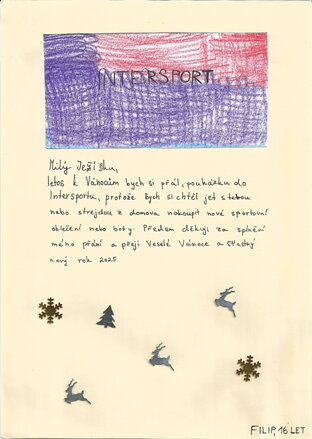 INTERSPORT
Milý Ježíšku,
letos k Vánocům bych si přál, poukázku do
Intersportu, protože bych si chtěl jet s tetou
nebo strejdou z domova nakoupit nové sportovní
oblečení nebo boty. Předem děkuji za splnění
mého přání a přeji Veselé Vánoce a šťastný
nový rok 2025
FILIP, 16 LET